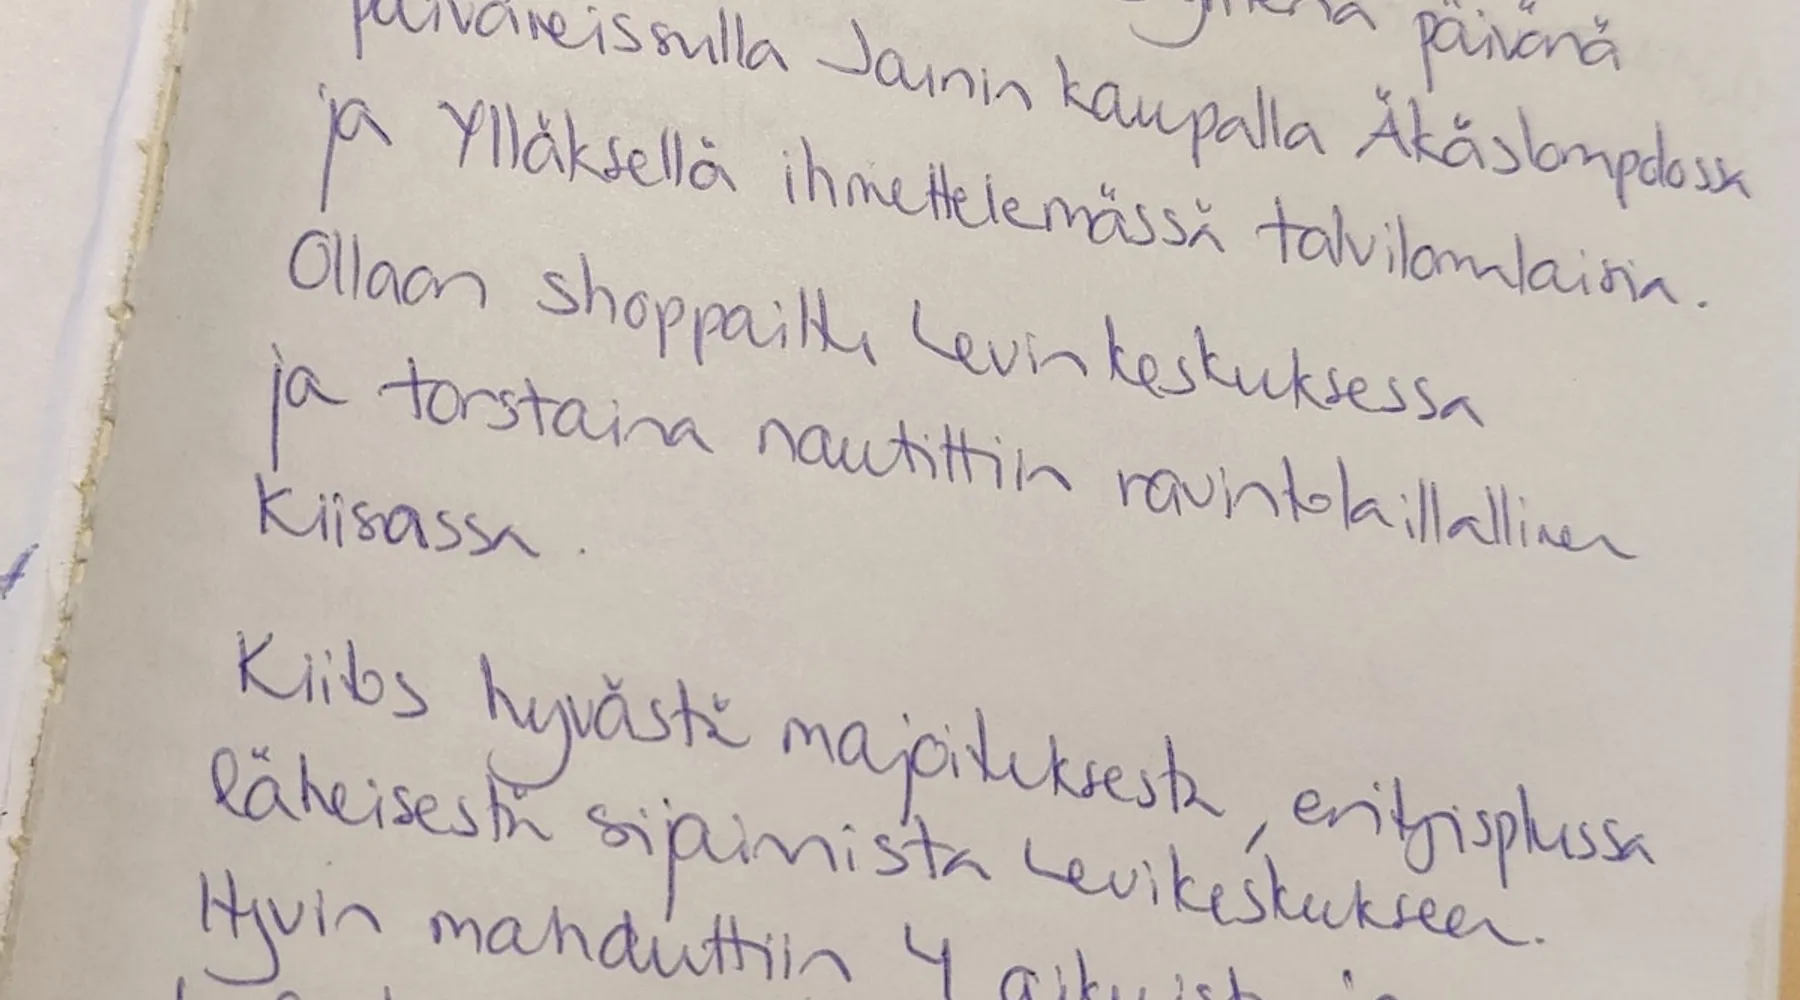 päivänä
päiväreissulla Jounin kaupalla Äkäslompolossa
ja Ylläksellä ihmettelemässä talvilomalaisia.
Ollaan shoppailtu Levin keskuksessa
ja torstaina nautittiin ravintolaillallinen
Kiisassa.
Kiitos hyvästä majoituksesta, erityisplussa
läheisestä sijainnista Levikeskukseen.
Hyvin mahduttiin 4 aikuista ja